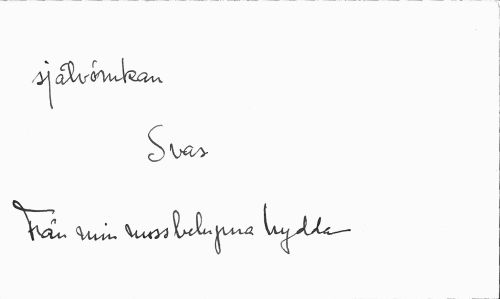 självömkan
Svas
Från min mossbelupna hydda